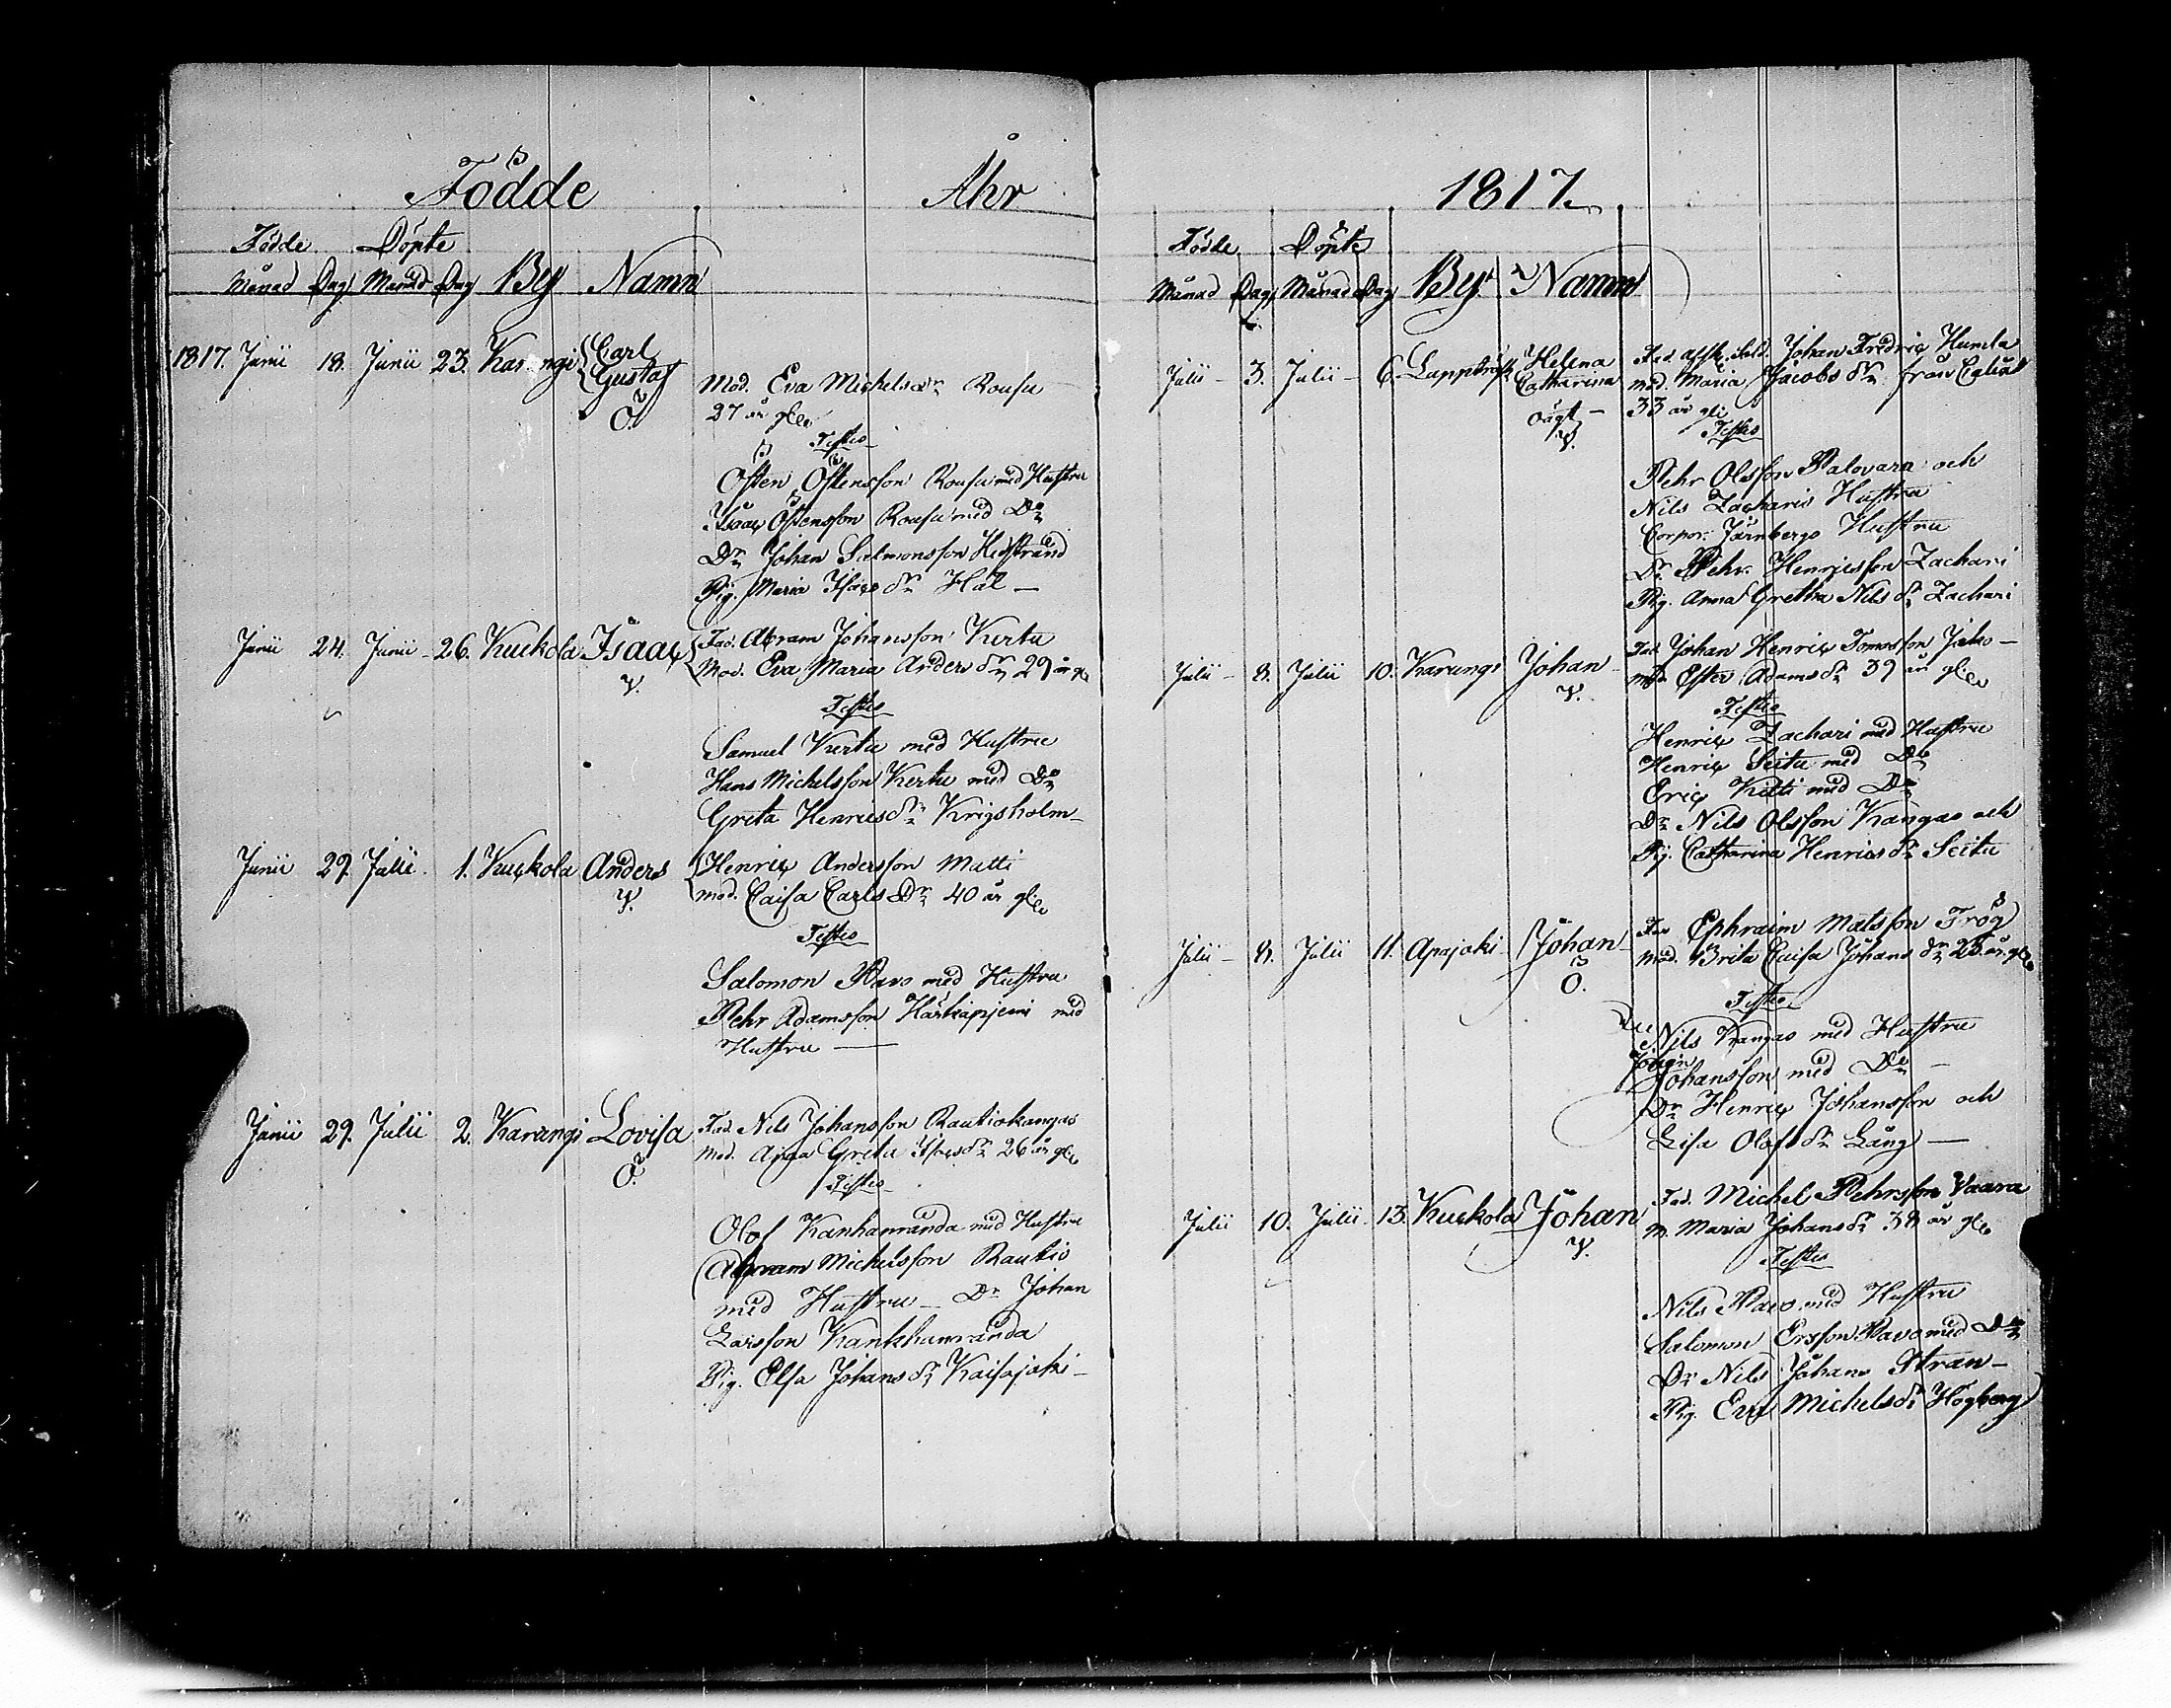 Födde Åhr
Födde Döpte
Månad Dag Månad Dag By Namn
1817. Junii 18. Junii 23. Karungi Carl
Gustaf
Ö.
Mod. Eva Michelsdr Rousu
27 år gl
Testes
Östen Östensson Rousu med Hustru
Isaac Östensson Rousu med Do
Dr Johan Salmonsson
Pig. Maria Isacs dr
Junii 24. Junii 26. Kuckola Isaac
V.
Fad. Abram Johansson Kertu
Mod. Eva Maria Anders dr 29 år gl
Testes
Samuel Kertu med Hustru
Hans Michelsson Kertu med Do
Greta Henricsdr Krigsholm
Junii 29. Julii 1. Kuckola Anders
V.
Henric Andersson Matti
mod. Caisa Carls Dr 40 år gl
Testes
Salomon Pavo med Hustru
Pehr Adamsson med
Hustru
Junii 29. Julii 2. Karungi Lovisa
Ö.
Fad. Nils Johansson Rautiokangas
Mod. Anna Greta Isacsdr 26 år gl
Testes
Olof Kanhanranda med Hustru
Abram Michelsson Rautio
med Hustru – Dr Johan
Larsson Kankhanranda
Pig. Elsa Johans dr Kaisajoki
1817
Födde Döpte
Månad Dag Månad Dag By Namn
Julii 3. Julii 6. Lappträsk Helena
Catharina
V.
Fad. afsk. Sold. Johan Fredric Humla
mod. Maria Jacobs dr från
33 år gl
Testes
Pehr Olsson Palovara och
Nils Zacharis Hustru
Corpor. Järnbergs Hustru
Dr. Pehr Henricsson Zachari
Pig. Anna Gretha Nils dr Zachari
Julii 8. Julii 10. Karungi Johan
V.
Fad. Johan Henric Tomasson
Ester Adamsdr 39 år gl
Testes
Henric Zachari med Hustru
Henric Seitu med Do
Eric Kitti med Do
Dr Nils Olsson Kangas och
Pig. Catharina Henricsdr Seitu
Julii 8. Julii 11. Apajoki Johan
Ö.
Ephraim Matsson Trög
Mod. Brita Caisa Johans dr 23 år gl
Testes
Nils Kangas med Hustru
Johan
Johansson med Do
Dr Henric Johansson och
Lisa Olofsdr Lång
Julii 10. Julii 13. Kuckola Johan
V.
Fad. Michel Pehrsson Vaara
M. Maria Johansdr 38 år gl
Testes
Nils Pavo med Hustru
Salomon Ersson Pavo med Do
Dr Nils Johans Stran
Pig. Eva Michelsdr Högberg